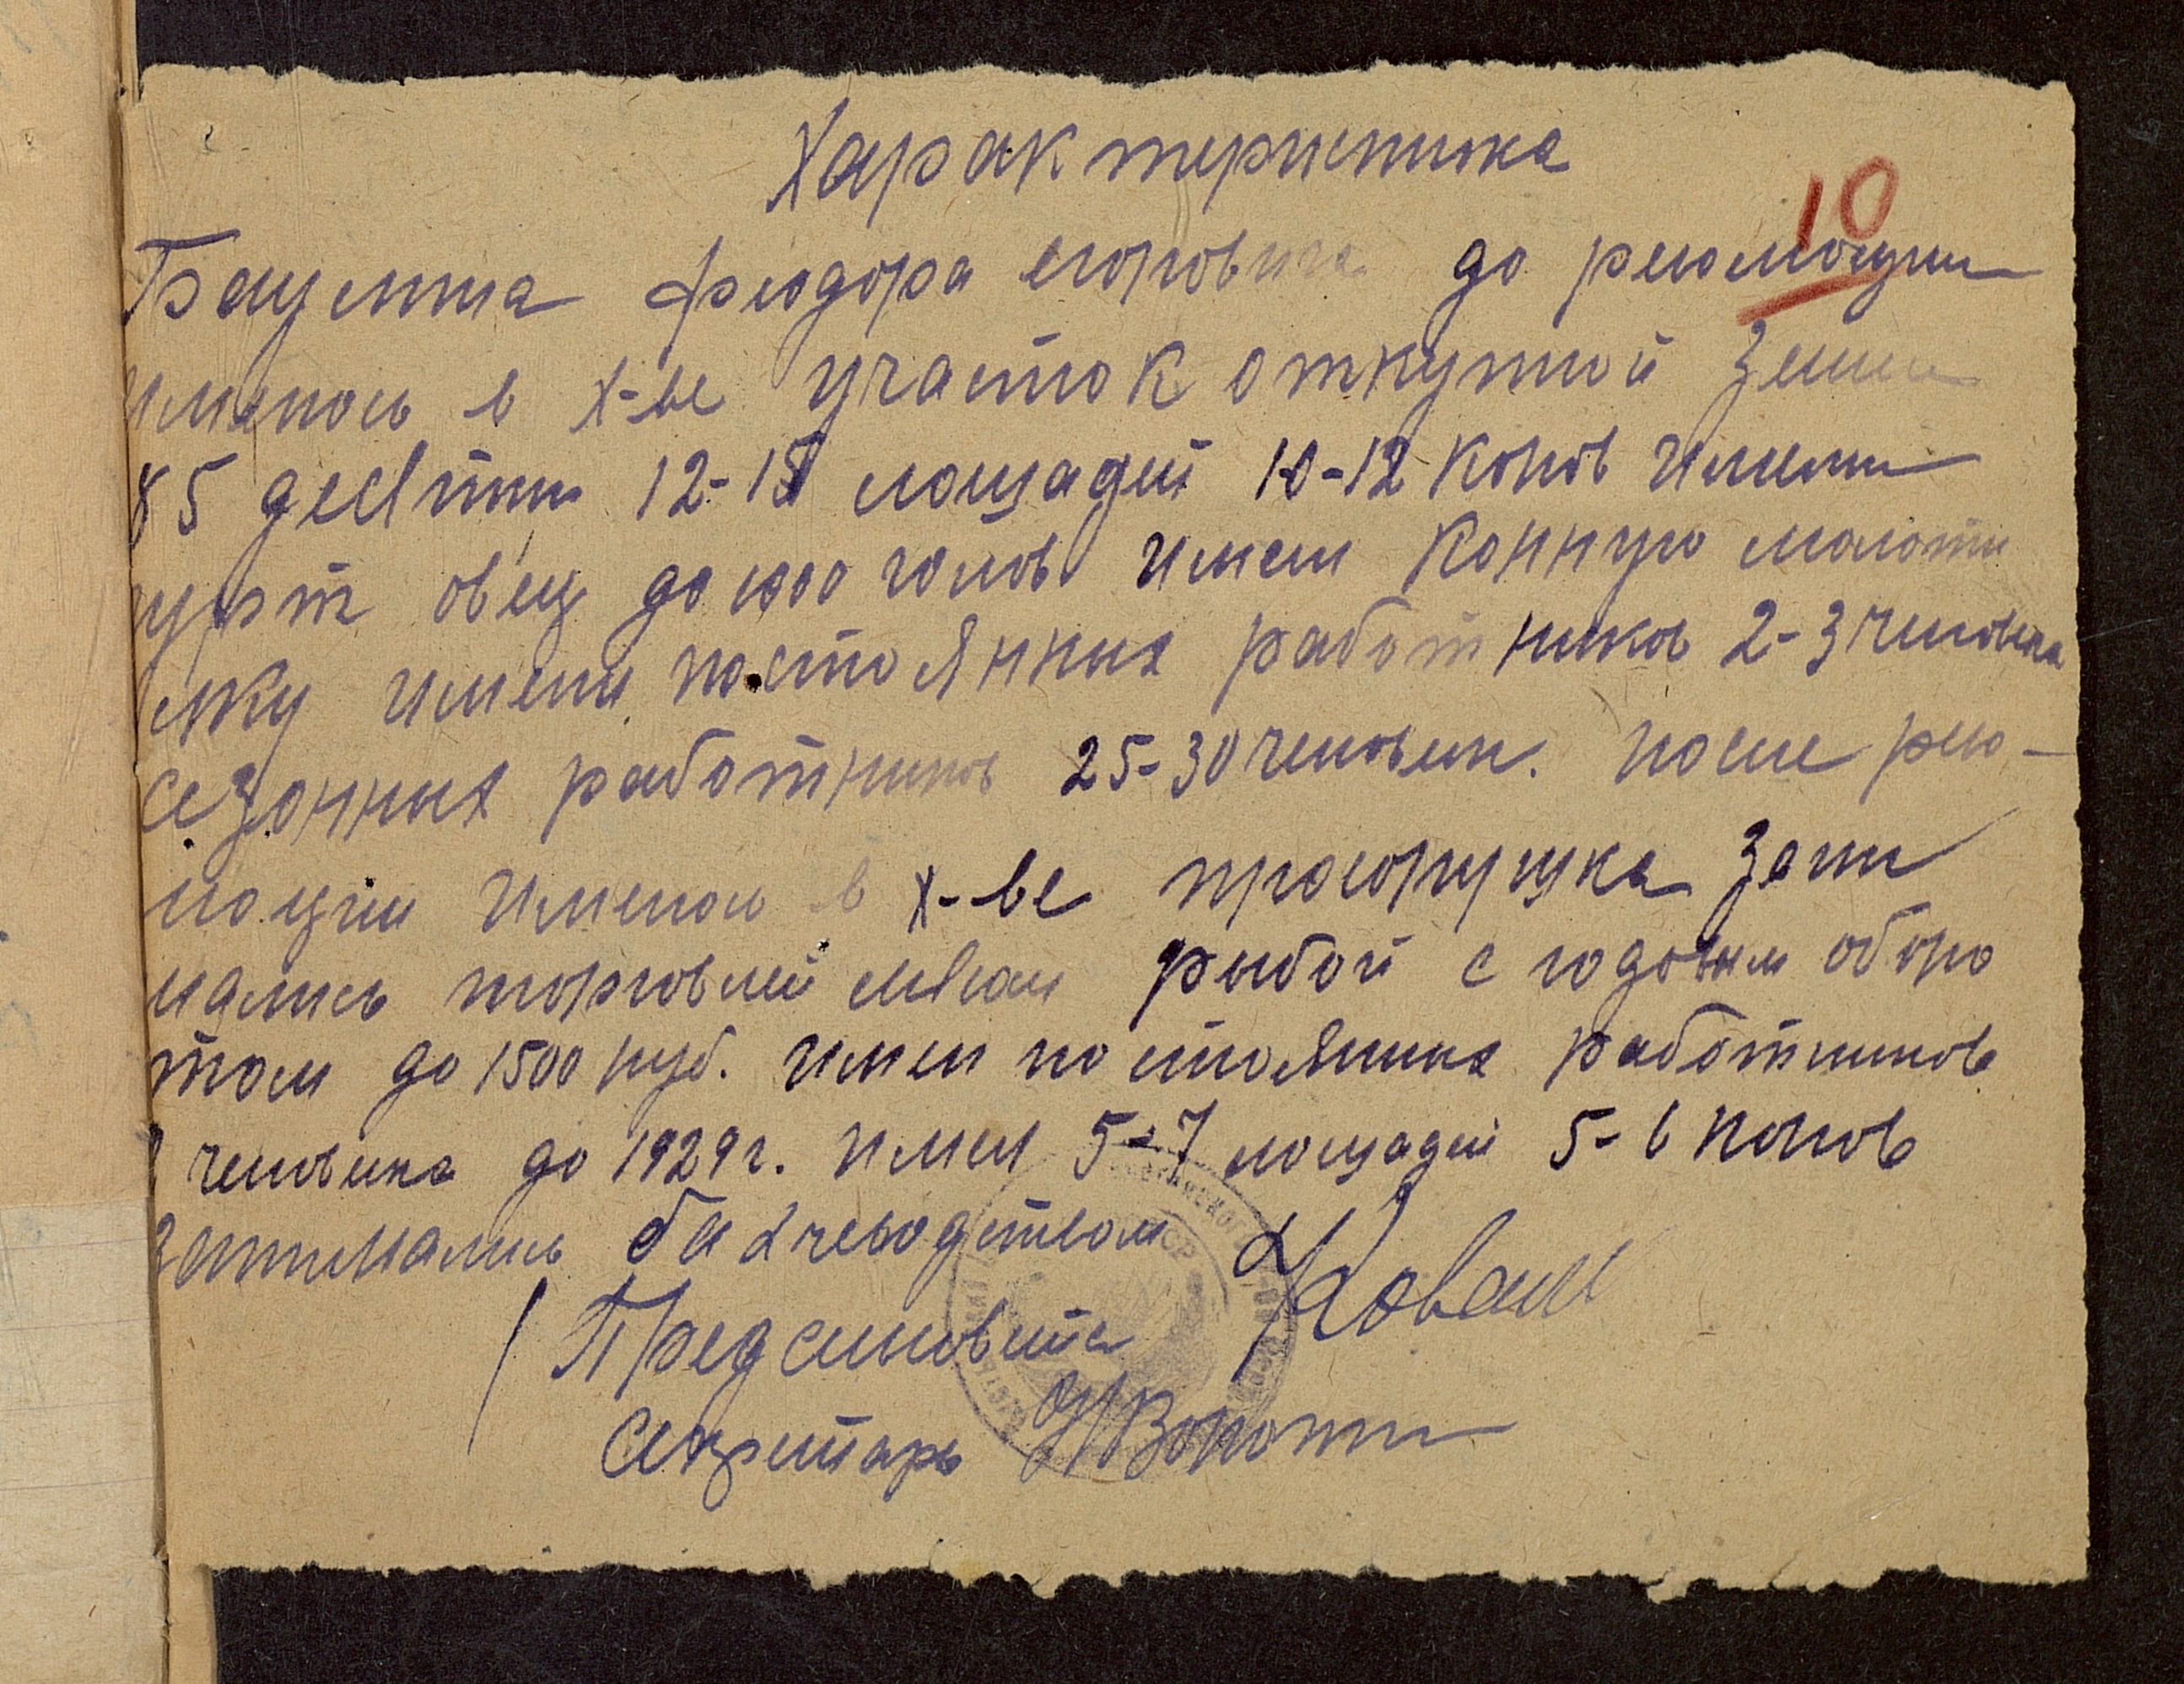 Характеристика
10
Бацунта феодора егоровича до револющии
имелось в х-ве участок откупной Земли
85 десятин 12-15 лощадей 10-12 коров имели
гурт овец до 1000 голов имели конную молоти
лку имели постоянных работников 2-3 человека
сезонных работников 25-30 человек. после рево-
люции имелось в х-ве зани
мались торговлей мясом рыбой с годовым оборо
том до 1500 руб. имел постоянных работников
человека до 1929 г. имел 5-7 лощадей 5-6 коров
занимались бахчеводством
Председатель Ковал
Секретарь